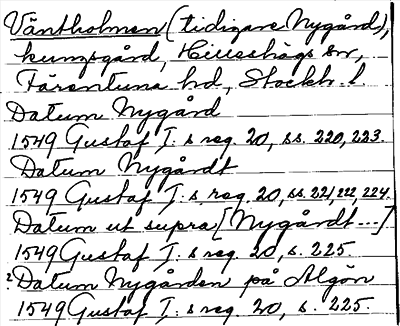 Väntholmen (tidigare Nygård),
kungsgård, Hilleshögs sn,
Färentuna hd, Stockh. l.
Datum Nygård
1549 Gustaf I:s reg. 20, ss. 220, 223.
Datum Nygårdt
1549 Gustaf I:s reg. 20, ss. 221, 222, 224.
Datum ut supra [Nygårdt ...]
1549 Gustaf I:s reg. 20, s. 225.
? Datum Nygården på Algön
1549 Gustaf I:s reg. 20, s. 225.